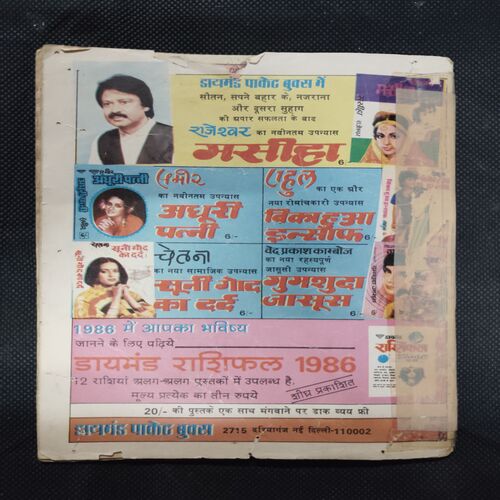 डायमंड पाकेट बुक्स में
सौतन, सपने बहार के, नजराना
और दूसरा सुहाग
की अपार सफलता के बाद
राजेश्वर का नवीनतम उपन्यास
मसीहा 6
अधूरी पत्नी
समीर
का नवीनतम उपन्यास
अधूरी
पत्नी 6/-
राहुल का एक और
नया रोमांचकारी उपन्यास
बिका हुआ
इन्साफ 6/-
चेतना सूनी गोद
का दर्द
चेतना
का नया सामाजिक उपन्यास
सूनी गोद
का दर्द 6/-
वेद प्रकाश काम्बोज
का नया रहस्यपूर्ण
जासूसी उपन्यास 6/-
गुमशुदा
जासूस
1986 में आपका भविष्य
जानने के लिए पढ़िये
डायमंड राशिफल 1986
12 राशियां अलग-अलग पुस्तकों में उपलब्ध है.
मूल्य प्रत्येक का तीन रुपये
शीघ्र प्रकाशित
राशिफल
20/- की पुस्तकें एक साथ मंगवाने पर डाक व्यय फ्री
डायमंड पाकेट बुक्स 2715 दरियागंज नई दिल्ली-110002